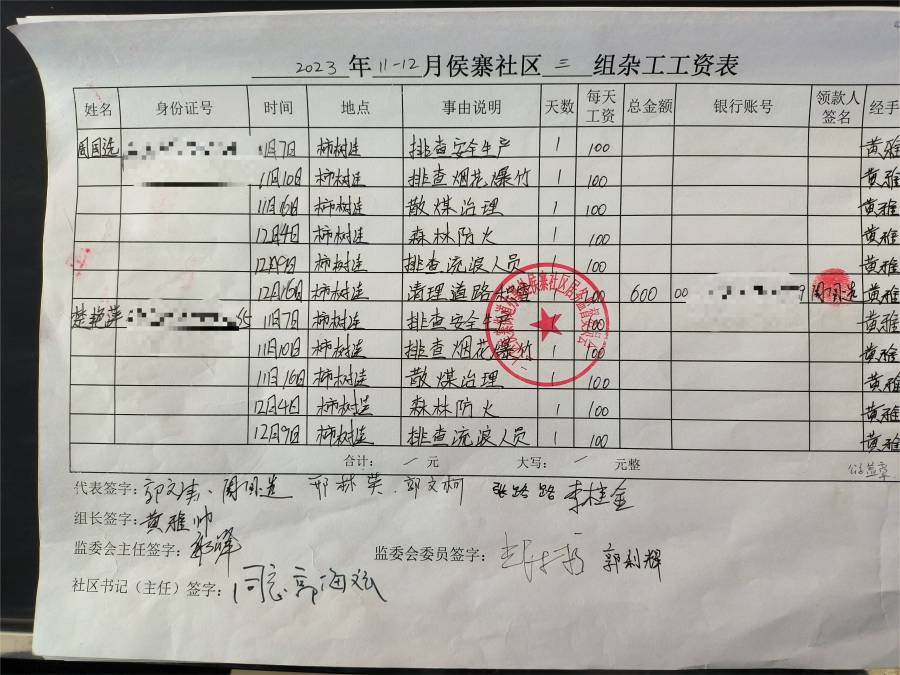 2023年11-12月侯寨社区三组杂工工资表
姓名 身份证号 时间 地点 事由说明 天数 每天工资 总金额 银行账号 领款人签名 经手
周国选 11月7日 柿树洼 排查安全生产 1 100 黄雅
11月10日 柿树洼 排查烟花爆竹 1 100 黄雅
11月16日 柿树洼 散煤治理 1 100 黄雅
12月4日 柿树洼 森林防火 1 100 黄雅
12月9日 柿树洼 排查流浪人员 1 100 黄雅
12月16日 柿树洼 清理道路积雪 1 100 600 00 9 周国选 黄雅
楚艳萍 55 11月7日 柿树洼 排查安全生产 1 100 黄雅
11月10日 柿树洼 排查烟花爆竹 1 100 黄雅
11月16日 柿树洼 散煤治理 1 100 黄雅
12月4日 柿树洼 森林防火 1 100 黄雅
12月9日 柿树洼 排查流浪人员 1 100 黄雅
合计: / 元 大写: / 元整
代表签字: 周国选 郭文柯 张路路 李桂金
组长签字:黄雅帅
监委会主任签字: 监委会委员签字: 郭利辉
社区书记(主任)签字:同意郭海斌